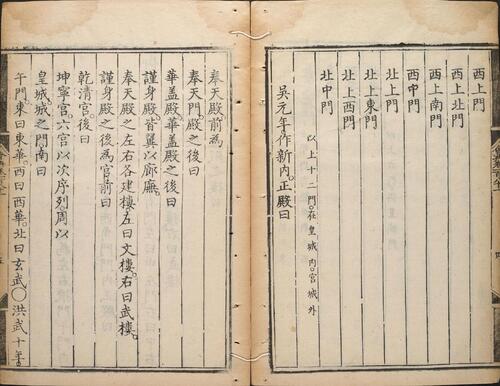 西上門
西上北門
西上南門
西中門
北上門
北上東門
北上西門
北中門
以上十二門。在皇城內。宮城外
吳元年作新內。正殿曰
奉天殿前為
奉天門。殿之後曰
華盖殿華盖殿之後曰
謹身殿。皆翼以廊廡。
奉天殿之左右各建樓左曰文樓。右曰武樓。
謹身殿之後為宫前曰
乾清宫。後曰
坤寧宫六宫以次序列周以
皇城。城之門南曰
午門。東曰東華。西曰西華。北曰玄武。○洪武十年。